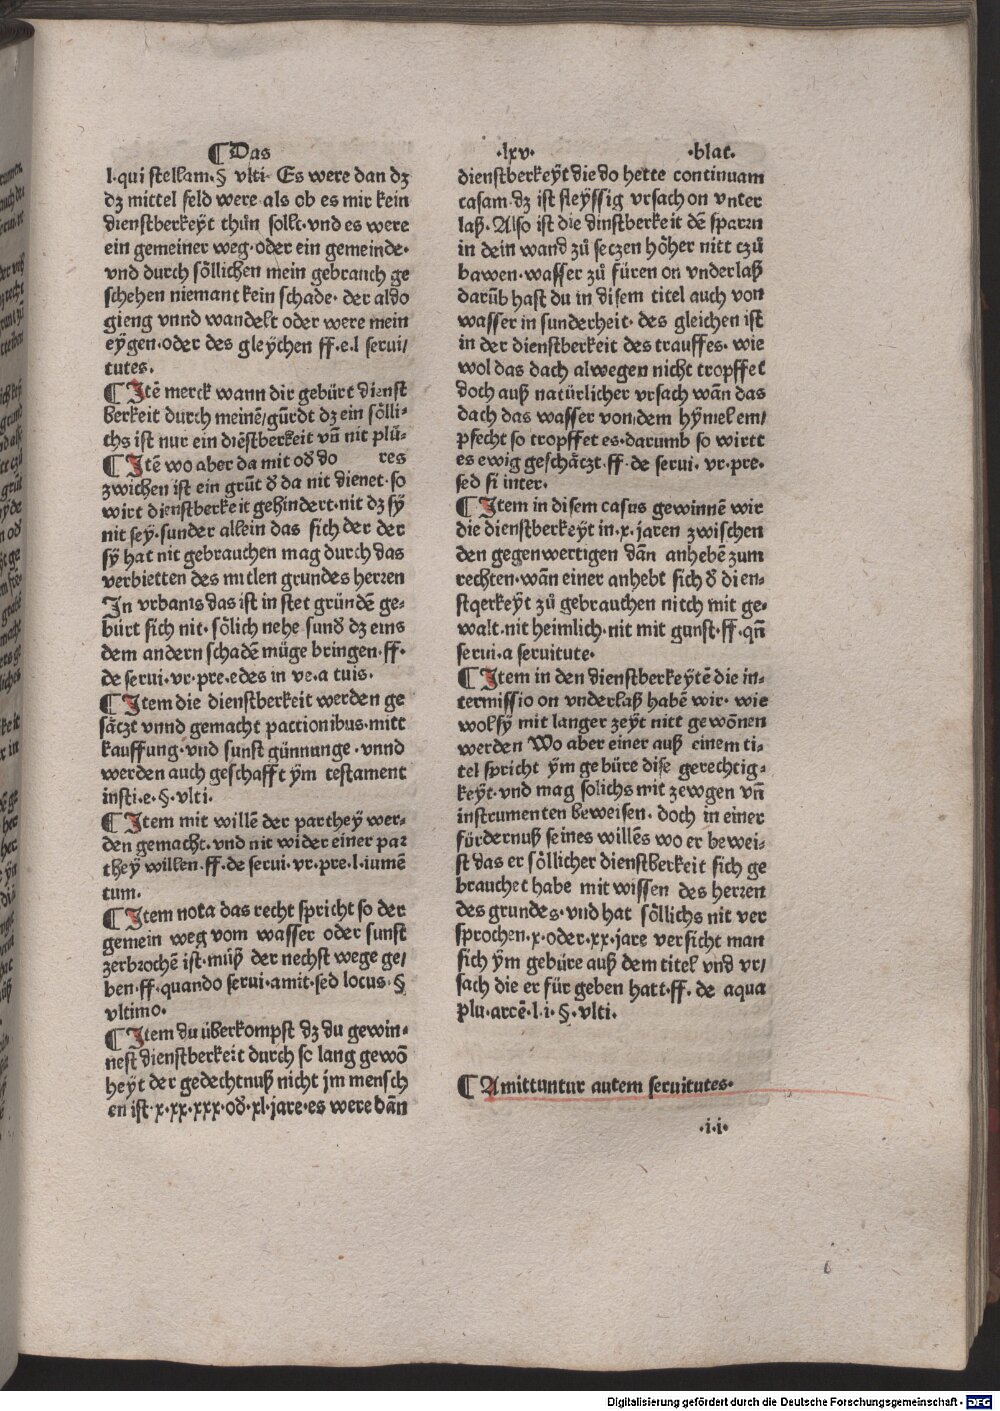 ¶Das ·lxv· ·blat·
l·qui stellam·§ vlti· Es were dan dz
dz mittel feld were als ob es mir kein
dienstberkeyt thün sollt·vnd es were
ein gemeiner weg·oder ein gemeinde·
vnd durch söllichen mein gebrauch ge
schehen niemant kein schade· der aldo
gieng vnnd wandelt oder were mein
eygen·oder des gleychen ff·e·l servi/
tutes·
¶Itē merck wann dir gebürt dienst
berkeit durch meinē/gürdt dz ein sölli⸗
chs ist nur ein diēstberkeit vn̄ nit plū⸗
¶Itē wo aber da mit od̄ do res
zwichen ist ein grūt d̄ da nit dienet·so
wirt dienstberkeit gehindert·nit dz sy
nit sey·sunder allein das sich der der
sy hat nit gebrauchen mag durch das
verbietten des mitlen grundes herzen
In vrbanis das ist in stet gründē ge⸗
bürt sich nit· sölich nehe sund̄ dz eins
dem andern schadē müge bringen·ff·
de servi·vr·pre·edes in ve·a tuis·
¶Item die dienstberkeit werden ge
säczt vnnd gemacht pactionibus·mitt
kauffung·vnd sunst günnunge·vnnd
werden auch geschafft ym testament
insti·e·§·vlti·
¶Item mit willē der parthey wer⸗
den gemacht·vnd nit wider einer par
they willen·ff·de servi·vr·pre·l·iumē
tum·
¶Item nota das recht spricht so der
gemein weg vom wasser oder sunst
zerbrochē ist·müß der nechst wege ge/
ben·ff·quando servi·amit·sed locus·§
vltimo·
¶Item du überkompst dz du gewin⸗
nest dienstberkeit durch so lang gewō
heyt der gedechtnuß nicht jm mensch
en ist·x·xx·xxx·od̄·xl·jare·es were dān
dienstberkeyt die do hette continuam
casam·dz ist fleyssig vrsach on vnter
laß·Also ist die dinstberkeit dē sparrn
in dein wand zü seczen höher nitt czü
bawen·wasser zü füren on vnderlaß
darüb hast du in disem titel auch von
wasser in sunderheit·des gleichen ist
in der dienstberkeit des trauffes·wie
wol das dach alwegen nicht tropffet
doch auß natürlicher vrsach wān das
dach das wasser von dem hymel em/
pfecht so tropffet es·darumb so wirtt
es ewig geschäczt·ff·de servi·vr·pre·
sed si inter·
¶Item in disem casus gewinnē wir
die dienstberkeyt in·x·jaren zwischen
den gegenwertigen dān anhebē zum
rechten·wān einer anhebt sich d̄ dien⸗
stqerkeyt zü gebrauchen nitch mit ge⸗
walt·nit heimlich·nit mit gunst·ff·qn̄
servi·a servitute·
¶Item in den dienstberkeytē die in⸗
termissio on vnderlaß habē wir·wie
wol sy mit langer zeyt nitt gewönen
werden Wo aber einer auß einem ti⸗
tel spricht ym gebüre dise gerechtig⸗
keyt·vnd mag solichs mit zewgen vn̄
instrumenten beweisen·doch in einer
fürdernuß seines willēs wo er bewei⸗
st das er söllicher dienstberkeit sich ge
brauchet habe mit wissen des herzen
des grundes·vnd hat söllichs nit ver
sprochen·x·oder·xx·jare versicht man
sich ym gebüre auß dem titel vnd vr/
sach die er für geben hatt·ff·de aqua
plu·arcē·l·i·§·vlti·
¶Amittuntur autem servitutes·
·i·i·
Digitalisierung gefördert durch die Deutsche Forschungsgemeinschaft - DFG